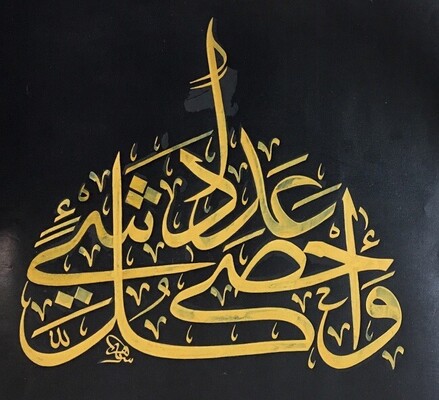 وَأَحْصَىٰ كُلَّ شَيْءٍ عَدَدًا